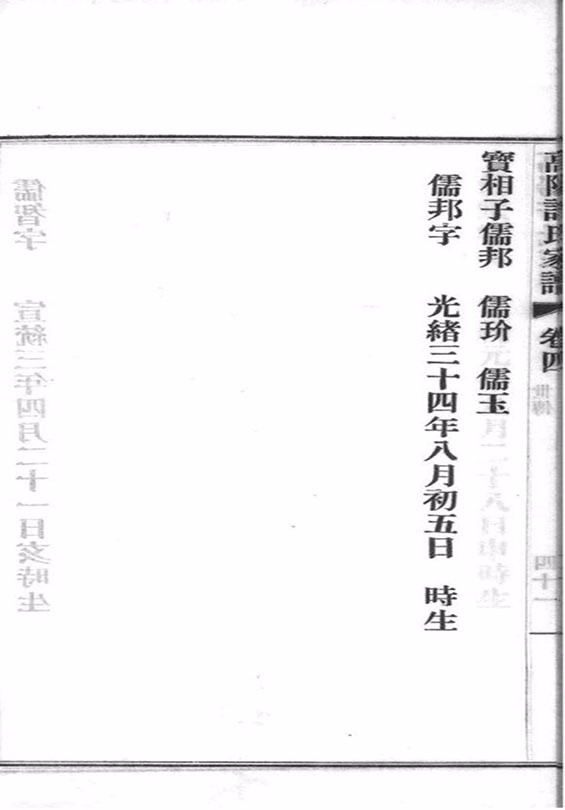 高陽許氏家譜 卷四
世傳
四十一
寶相子儒邦 儒玠 儒玉
儒邦字 光緒三十四年八月初五日 時生
儒智字 宣統三年四月二十一日亥時生